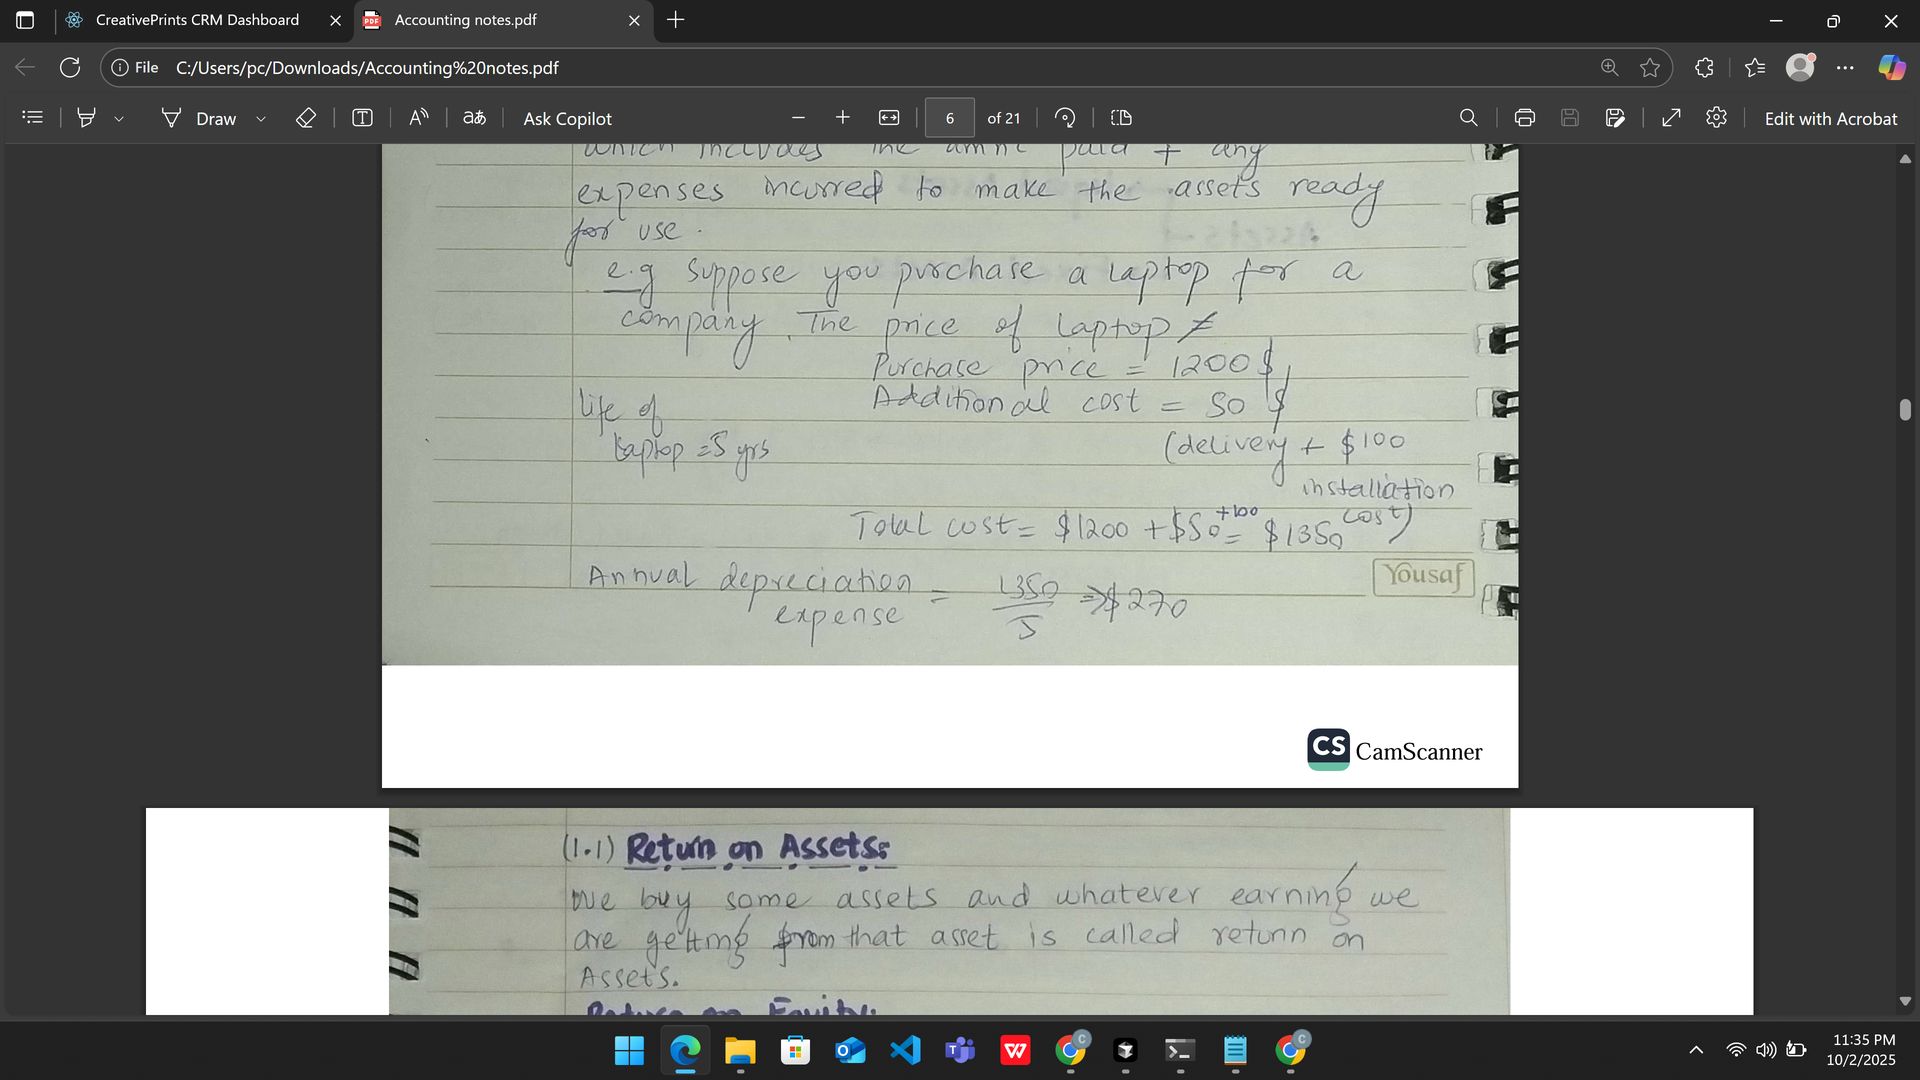 CreativePrints CRM Dashboard
Accounting notes.pdf
File C:/Users/pc/Downloads/Accounting%20notes.pdf
Draw
Ask Copilot
6 of 21
Edit with Acrobat
which includes the amnt paid + any
expenses incurred to make the assets ready
for use.
e.g Suppose you purchase a laptop for a
company. The price of laptop
Purchase price = 1200 $
Additional cost = 50 $
life of
laptop = 5 yrs
(delivery + $100
installation
cost)
Total cost = $1200 + $50 +100 = $1350
Yousaf
Annual depreciation
expense = 1350 / 5 ⇒ $270
CS CamScanner
(1.1) Return on Assets:
We buy some assets and whatever earning we
are getting from that asset is called return on
Assets.
Return on Equity:
11:35 PM
10/2/2025